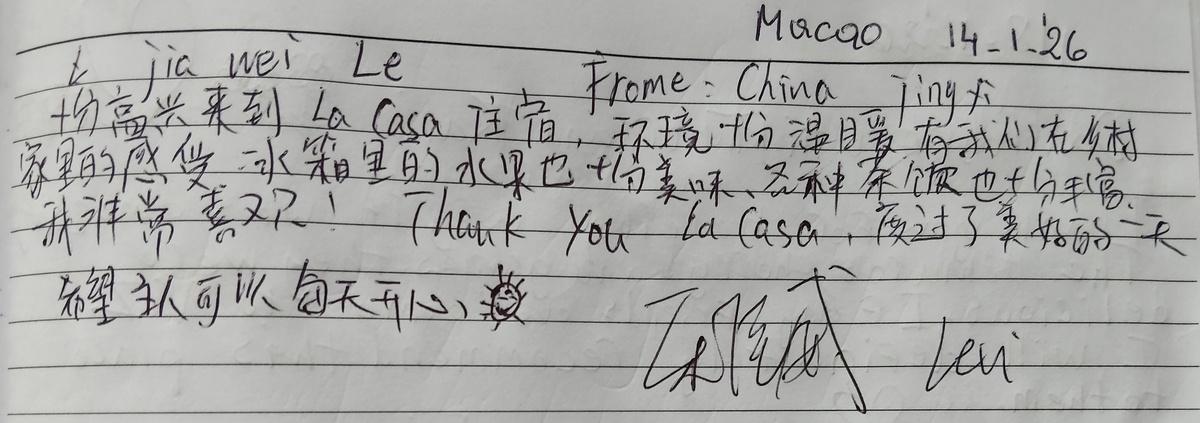 Macao 14-1.26
jia wei Le Frome: China jingxi
十份高兴来到 La Casa 住宿, 环境十份温暖有我们在乡村
家里的感受.冰箱里的水果也十份美味、各种茶饮也十分丰富.
我非常喜欢! Thank You La Casa, 度过了美好的一天
希望主人可以每天开心
Levi